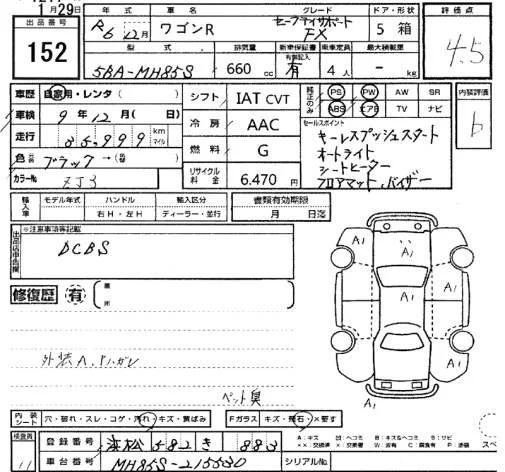 月29日
出品番号 152
年式 R6 12月
車名 ワゴンR
グレード セーフティサポート FX
ドア・形状 5 箱
評価点 4.5
型式 5BA-MH85S
排気量 660 cc
新車保証書 有 有無記入
乗車定員 4人
最大積載量 - kg
車歴 自家用・レンタ( )
車検 9年12月( 日)
走行 km マイル
色 ブラック→( )
カラーNo ZJ3
シフト IAT CVT
冷房 AAC
燃料 G
リサイクル料金 6,470円
純正のみ PS PW AW SR
ABS エアB TV ナビ
内装評価 b
セールスポイント
キーレスプッシュスタート
オートライト
シートヒーター
フロアマット、バイザー
輸入車 モデル年式 ハンドル 右H・左H 輸入区分 ディーラー・並行
書類有効期限 月 日迄
出品店申告欄 ※注意事項等記載
DCBS
修復歴 有 ( 箇所 )
外装A、
ペット臭
A1 A1 A1 A1 A1 A1
内装シート 穴・破れ・スレ・コゲ・汚れ・キズ・黄ばみ
Fガラス キズ・飛石・×要す
A:キズ U:ヘコミ B:キズ&ヘコミ S:サビ
登録番号 浜松 582 き 883
検査員
車台番号 MH85S-215530
シリアルNo.